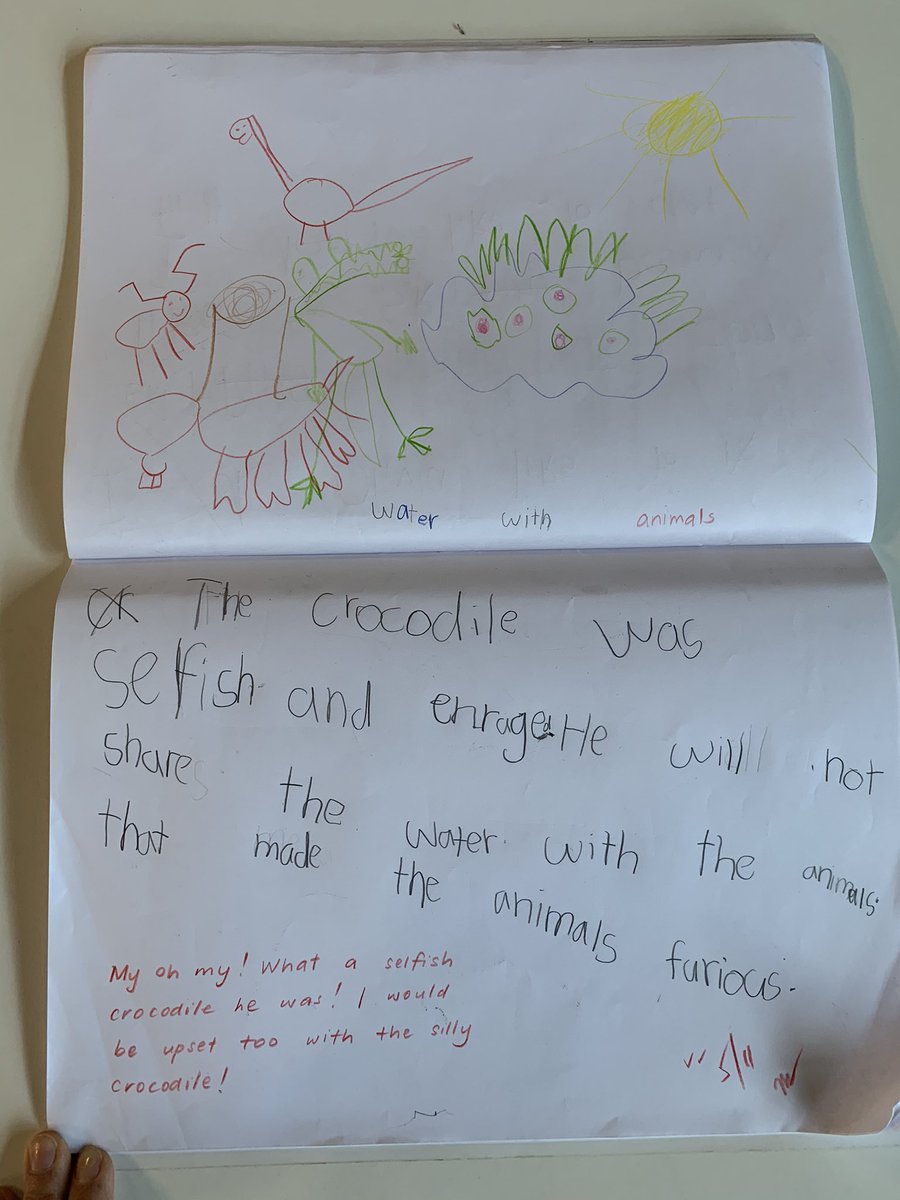 water with animals
The crocodile was
selfish and enraged. He will not
share the water with the animals.
that made the animals furious.
My oh my! What a selfish
crocodile he was! I would
be upset too with the silly
crocodile!